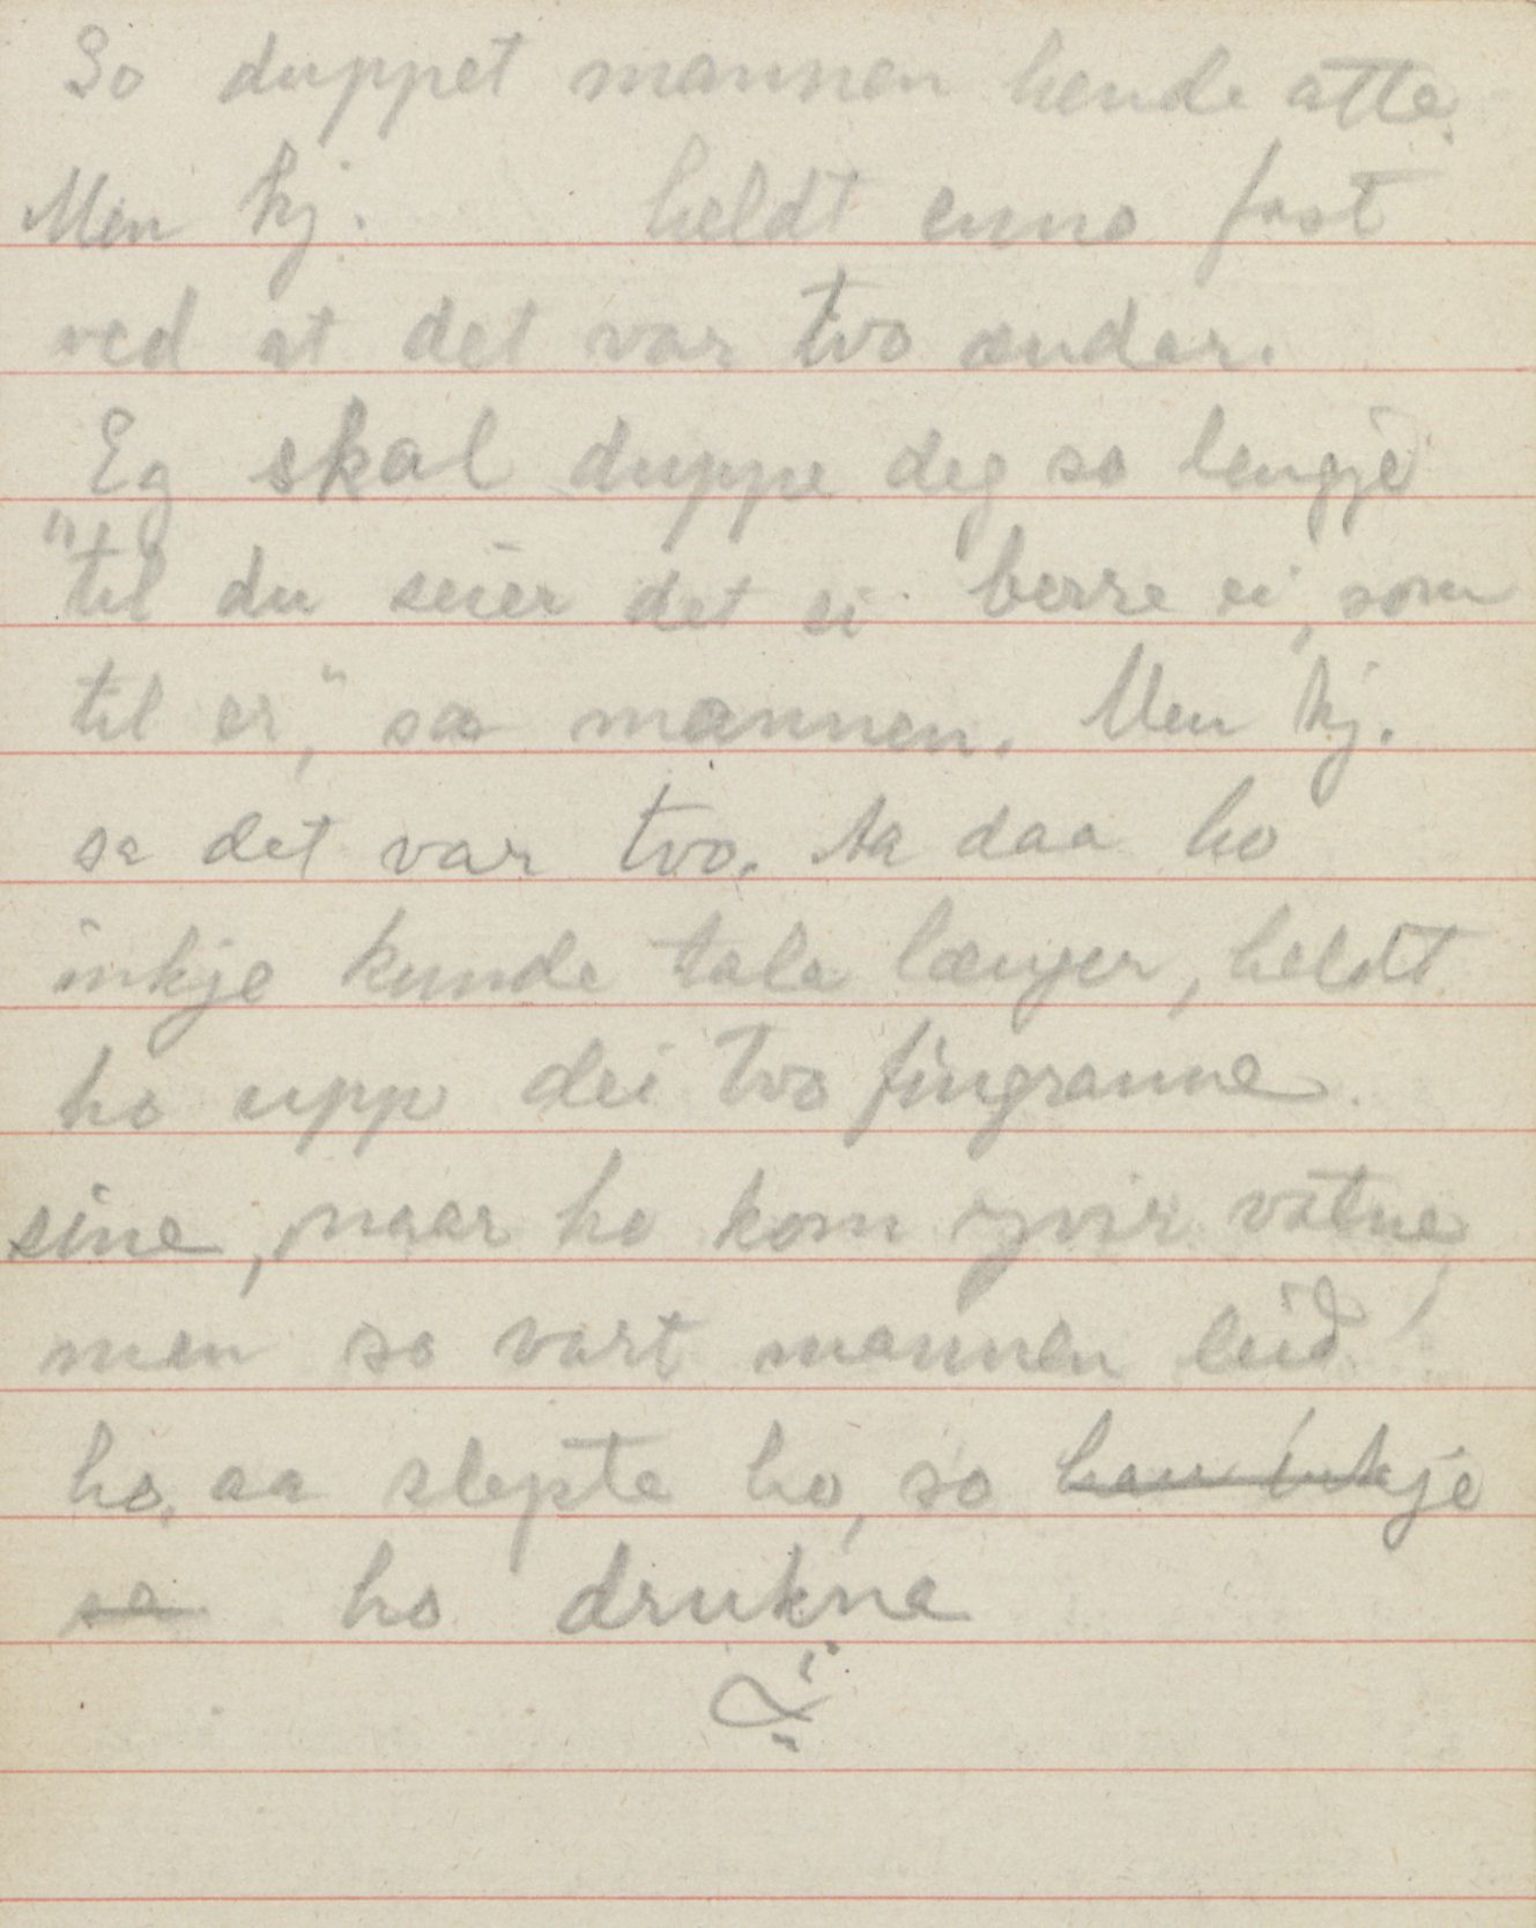 So duppet mannen hende atte.
Men kj. heldt enno fast
ved at det var tvo ender.
Eg skal duppe deg so lengje
"til du seier det ei berre ei, som
til er," sa mannen. Men kj.
sa det var tvo. Aa daa ho
inkje kunde tala længer, heldt
ho upp dei tvo fingranne
sine, naar ho kom yvir vatne,
men so vart mannen leid
ho, aa slepte ho, so han inkje
sa ho drukna